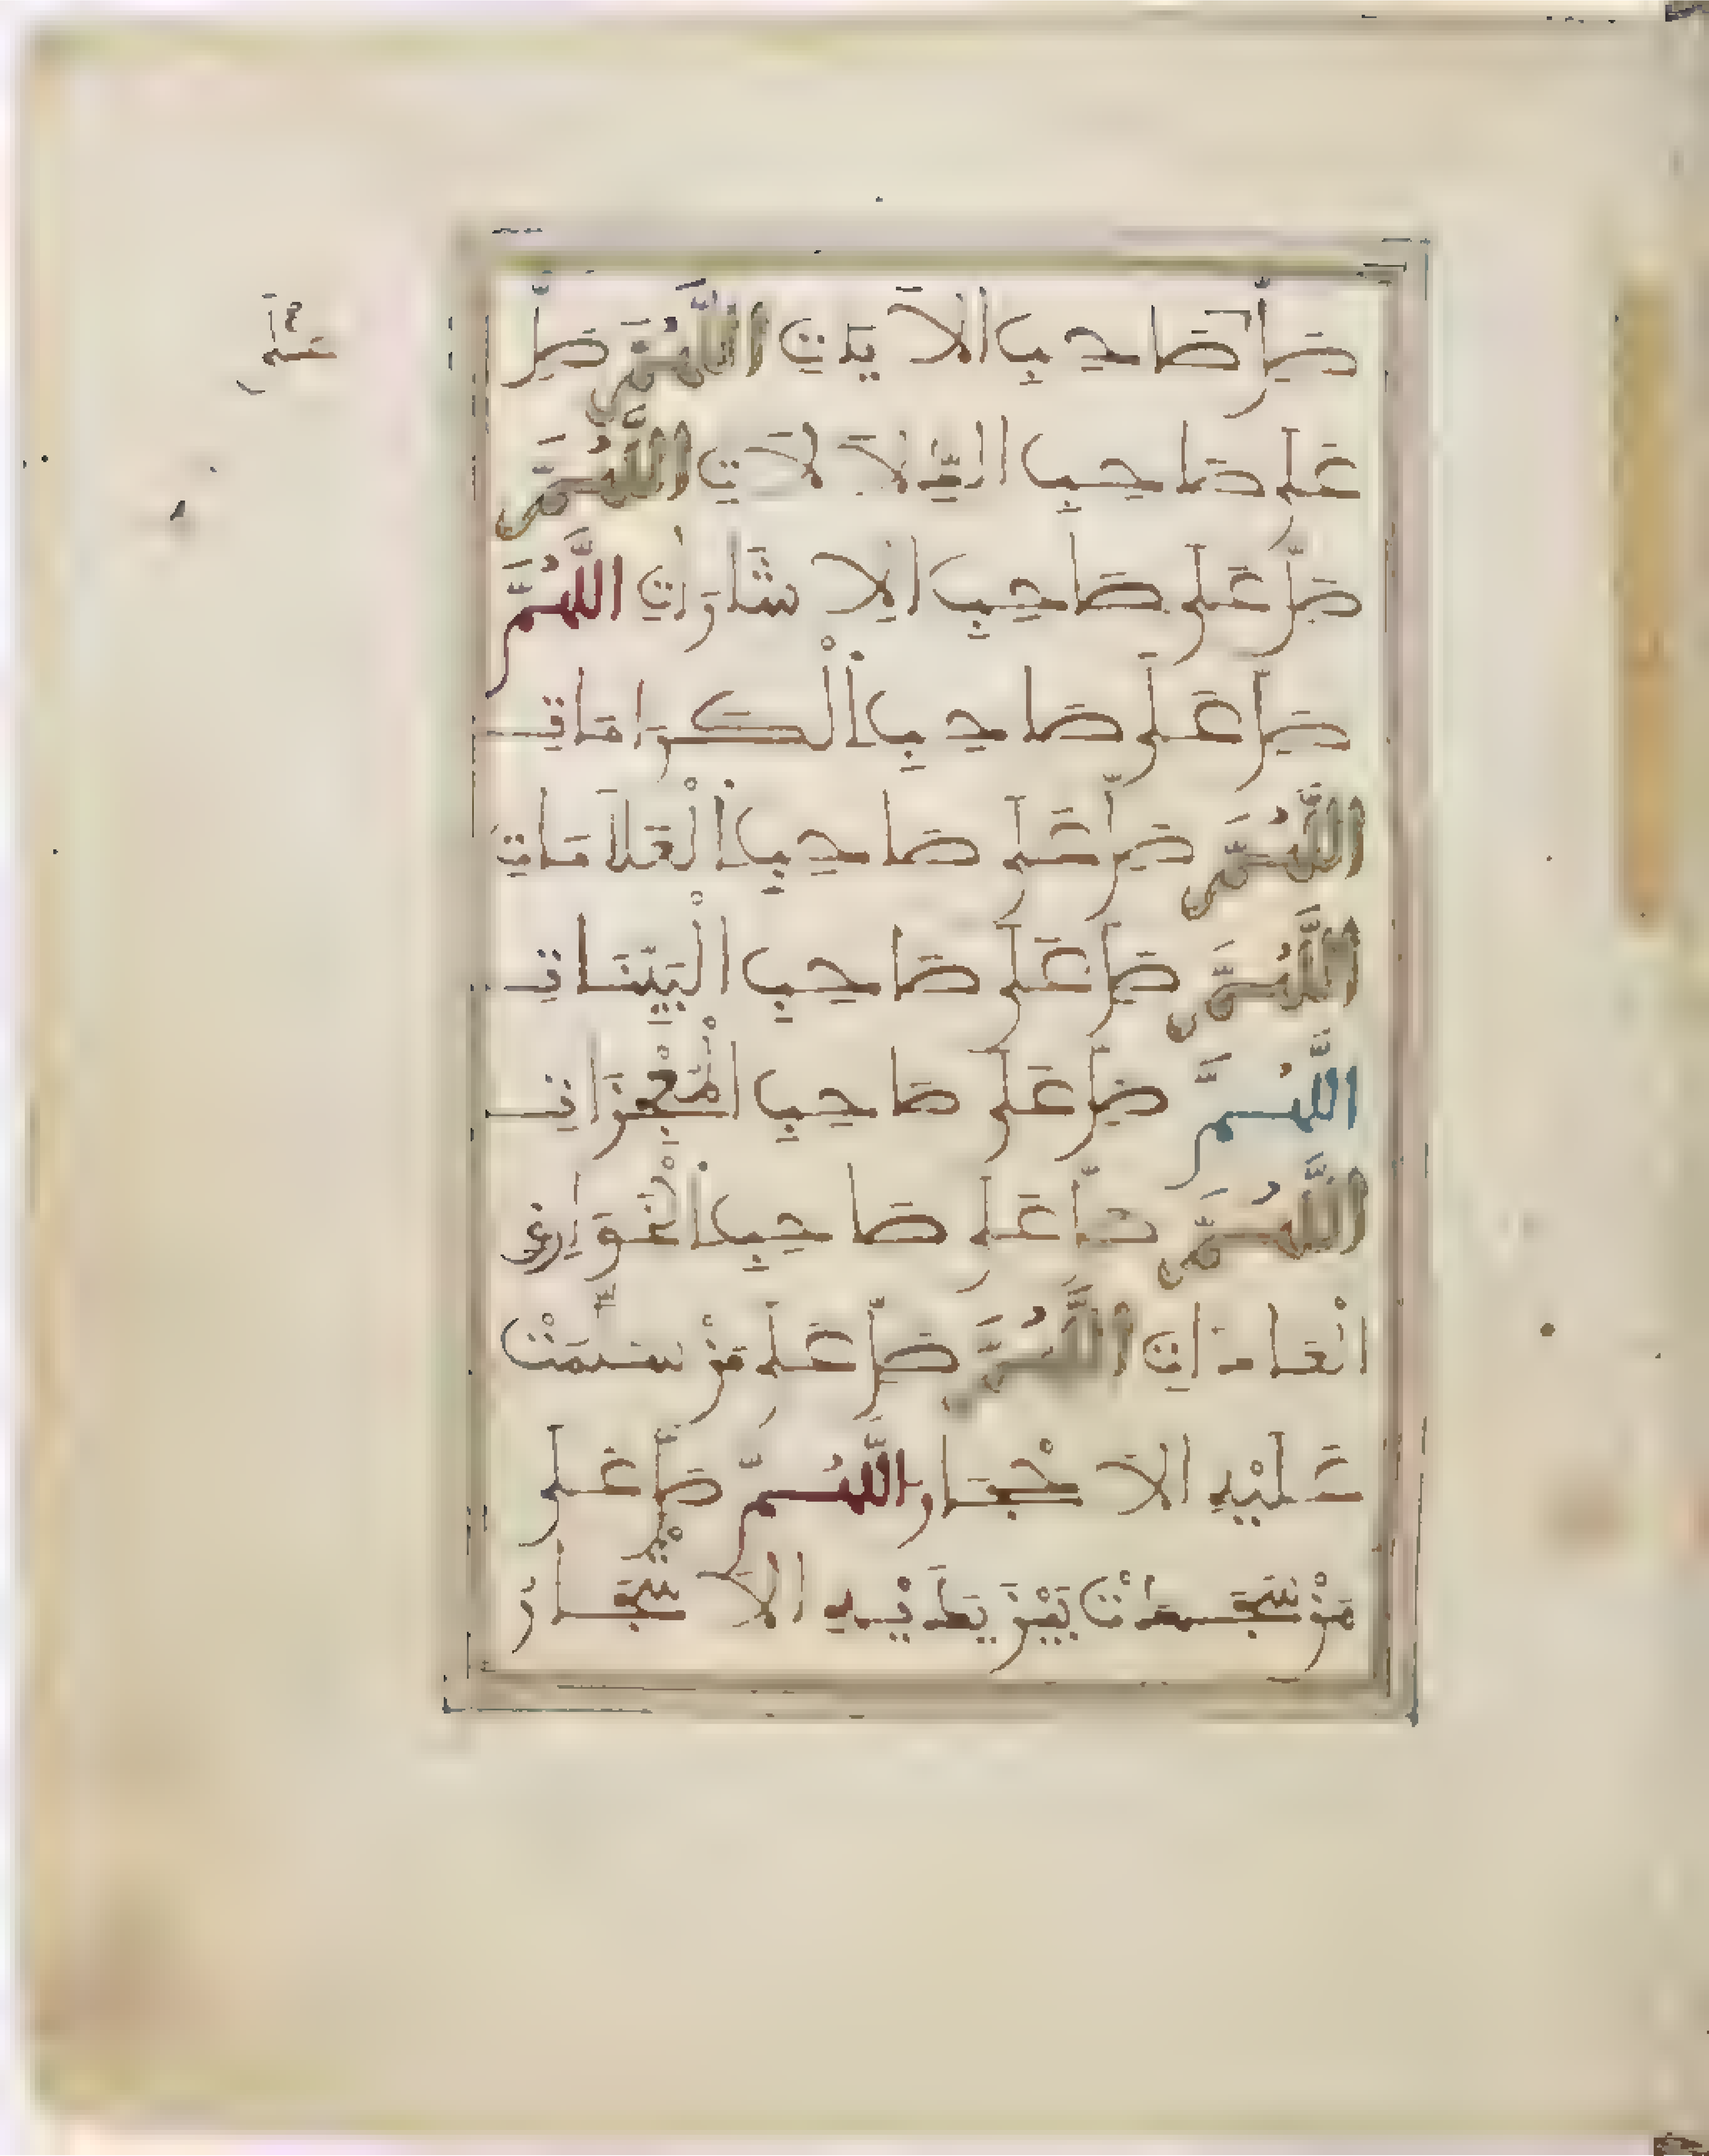 صَلِّ صَاحِبِ الْآيَاتِ اللَّهُمَّ صَلِّ
عَلَى صَاحِبِ الدِّلَالَاتِ اللَّهُمَّ
صَلِّ عَلَى صَاحِبِ الْإِشَارَاتِ اللَّهُمَّ
صَلِّ عَلَى صَاحِبِ الْكَرَامَاتِ
اللَّهُمَّ صَلِّ عَلَى صَاحِبِ الْعَلَامَاتِ
اللَّهُمَّ صَلِّ عَلَى صَاحِبِ الْبَيِّنَاتِ
اللَّهُمَّ صَلِّ عَلَى صَاحِبِ الْمُعْجِزَاتِ
اللَّهُمَّ صَلِّ عَلَى صَاحِبِ الْخَوَارِقِ
الْعَادَاتِ اللَّهُمَّ صَلِّ عَلَى مَنْ سَلَّمَتْ
عَلَيْهِ الْأَحْجَارُ اللَّهُمَّ صَلِّ عَلَى
مَنْ سَجَدَتْ بَيْنَ يَدَيْهِ الْأَشْجَارُ